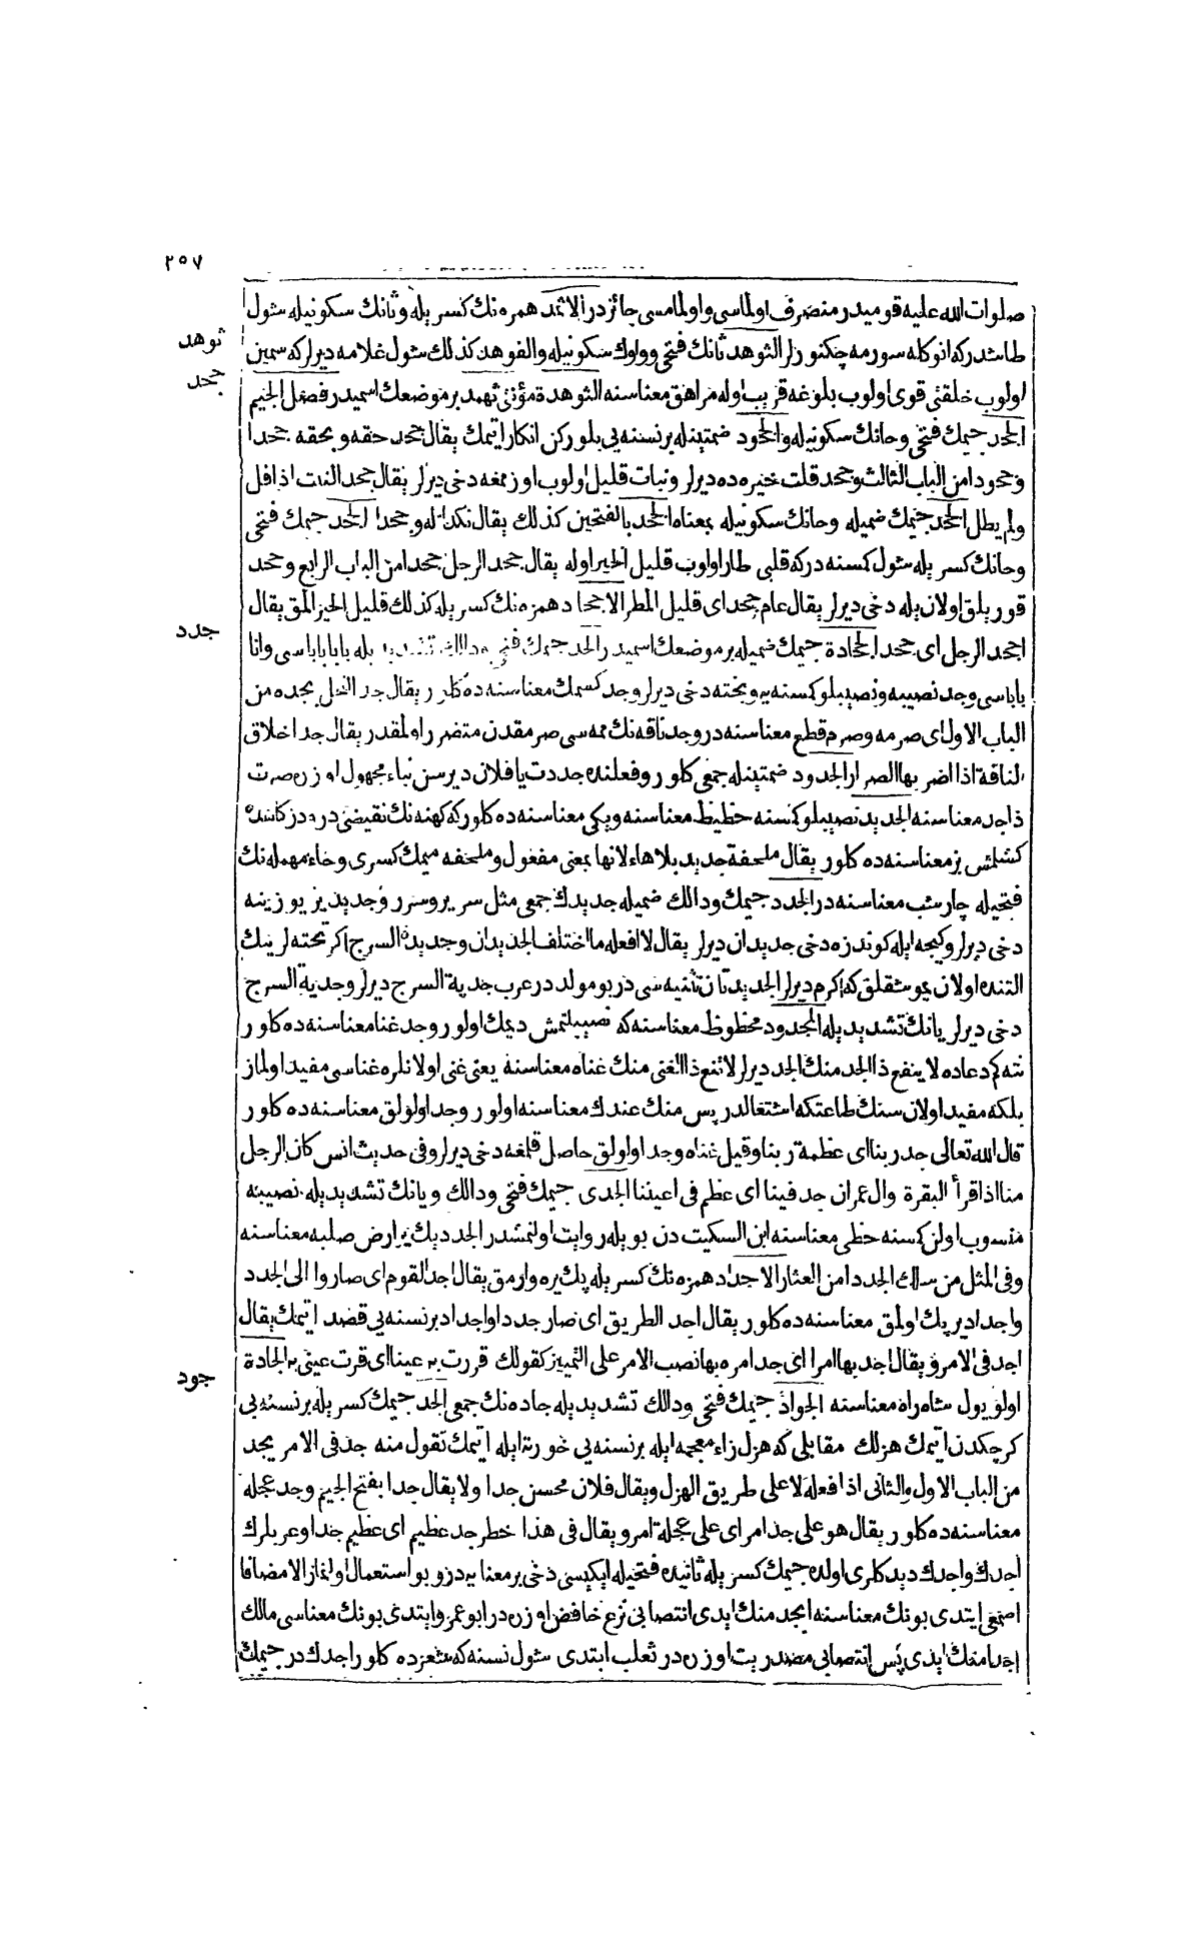 ٢٥٧
صلوات الله عليه قوميدر منصرف اولماسى واولمامسى جائزدر الاثمد همزه نك كسريله وثانك سكونيله شول
ثوهد
طاشدركه انوكله سورمه چكنورلر الثوهد ثانك فتحى وواوك سكونيله والفوهد كذلك شول غلامه ديرلركه سمين
جحد
اولوب خلقتى قوى اولوب بلوغه قريب اوله مراهق معناسنه الثوهدة مؤنثى ثهمد برموضعك اسميدر فصل الجيم
الجحد جيمك فتحى وحانك سكونيله والجحود ضمتينله برنسنه يى بلوركن انكار ايتمك يقال جحد حقه وبحقه جحدا
وجحودا من الباب الثالث وجحد قلت خيره ده ديرلر ونبات قليل اولوب اوزنمغه دخى ديرلر يقال جحد النبت اذا قل
ولم يطل الجحد جيمك ضميله وحانك سكونيله بمعناه الجحد بالفتحين كذلك يقال نكدا له وجحدا الجحد جيمك فتحى
وحانك كسريله شول كسنه دركه قلبى طار اولوب قليل الخير اوله يقال جحد الرجل جحدا من الباب الرابع وجحد
قوريلق اولان يله دخى ديرلر يقال عام جحد اى قليل المطر الاجحاد همزه نك كسريله كذلك قليل الخير المق يقال
جدد
اجحد الرجل اى جحد الجحادة جيمك ضميله برموضعك اسميدر الجد جيمك فتحى ودالك تشديديله بابا باباسى وانا
باباسى وجد نصيبه ونصيبلو كسنه يه وبخته دخى ديرلر وجد كسمك معناسنه ده كلور يقال جد النخل يجده من
الباب الاول اى صرمه وصرم قطع معناسنه در وجد ناقه نك ممه سى صرمقدن متضرر اولمقدر يقال جد اخلاق
الناقة اذا اضر بها الصرار الجدود ضمتينله جمعى كلور وفعلنده جددت يا فلان ديرسن بناء مجهول اوزره صرت
ذا جد معناسنه الجديد نصيبلو كسنه حظيظ معناسنه ويكى معناسنه ده كلوركه كهنه نك نقيضى در ودزكاهده
كشلمش بز معناسنه ده كلور يقال ملحفة جديد بلا هاء لانها بمعنى مفعول وملحفه ميمك كسرى وخاء مهمله نك
فتحيله چارشب معناسنه در الجدد جيمك ودالك ضميله جديدك جمعى مثل سرير وسرر وجديد يريوزينه
دخى ديرلر وكيجه ايله كوندزه دخى جديدان ديرلر يقال لا افعله ما اختلف الجديدان وجديدة السرج اكر تخته لرينك
التنده اولان يموشقلق كه اكرم ديرلر الجديدتان تثنيه سى در بو مولددر عرب جدية السرج ديرلر وجدية السرج
دخى ديرلر يانك تشديديله المجدود محظوظ معناسنه كه نصيبلنمش ديمك اولور وجد غنا معناسنه ده كلور
نته كم دعاده لا ينفع ذا الجد منك الجد ديرلر لا تنفع ذا الغنى منك غناه معناسنه يعنى غنى اولانلره غناسى مفيد اولماز
بلكه مفيد اولان سنك طاعتكه اشتغالدر پس منك عندك معناسنه اولور وجد اولولق معناسنه ده كلور
قال الله تعالى جد ربنا اى عظمة ربنا وقيل غناه وجد اولولق حاصل قلمغه دخى ديرلر وفى حديث انس كان الرجل
منا اذا قرأ البقرة وال عمران جد فينا اى عظم فى اعيننا الجدى جيمك فتحى ودالك ويانك تشديديله نصيبنه
منسوب اولن كسنه حظى معناسنه ابن السكيت دن بويله روايت اولنمشدر الجدد پك ير ارض صلبه معناسنه
وفى المثل من سلك الجدد امن العثار الاجداد همزه نك كسريله پك يره وارمق يقال اجد القوم اى صاروا الى الجدد
واجداد ير پك اولمق معناسنه ده كلور يقال اجد الطريق اى صار جددا واجداد برنسنه يى قصد ايتمك يقال
اجد فى الامر ويقال اجد بها امرا اى جد امره بها نصب الامر على التمييز كقولك قررت به عينا اى قرت عينى به الجادة
جود
اولو يول شاه راه معناسنه الجواد جيمك فتحى ودالك تشديديله جاده نك جمعى الجد جيمك كسريله برنسنه يى
كرچكدن ايتمك هزلك مقابلى كه هزل زاء معجمه ايله برنسنه يى خورتا ايله ايتمك تقول منه جد فى الامر يجد
من الباب الاول والثانى اذا فعله لا على طريق الهزل ويقال فلان محسن جدا ولا يقال جدا بفتح الجيم وجد عجله
معناسنه ده كلور يقال هو على جد امر اى على عجلة امر ويقال فى هذا خطر جد عظيم اى عظيم جدا وعربلرك
اجدك واجدك ديدكلرى اولده جيمك كسريله ثانيده فتحيله ايكيسى دخى بر معنايه در وبو استعمال اولنماز الا مضافا
اصمعى ايتدى بونك معناسنه ابجد منك ايدى انتصابى نزع خافض اوزره در ابو عمرو ايتدى بونك معناسى مالك
اجدا منك ايدى پس انتصابى مصدريت اوزره در ثعلب ايتدى شول نسنه كه شعرده كلور اجدك در جيمك